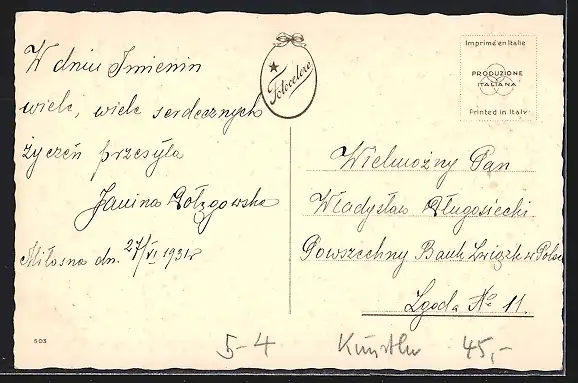 W dniu Imienin
wiele, wiele serdecznych
życzeń przesyła
Janina
Miłosna dn. 27/VI 1931r
503
Fotocelere
Imprimé en Italie
PRODUZIONE
ITALIANA
Printed in Italy
Wielmożny Pan
Władysław Długosiecki
Powszechny Bank Związk w Polsce
Zgoda No 11.
5-4 Künstler 45,-